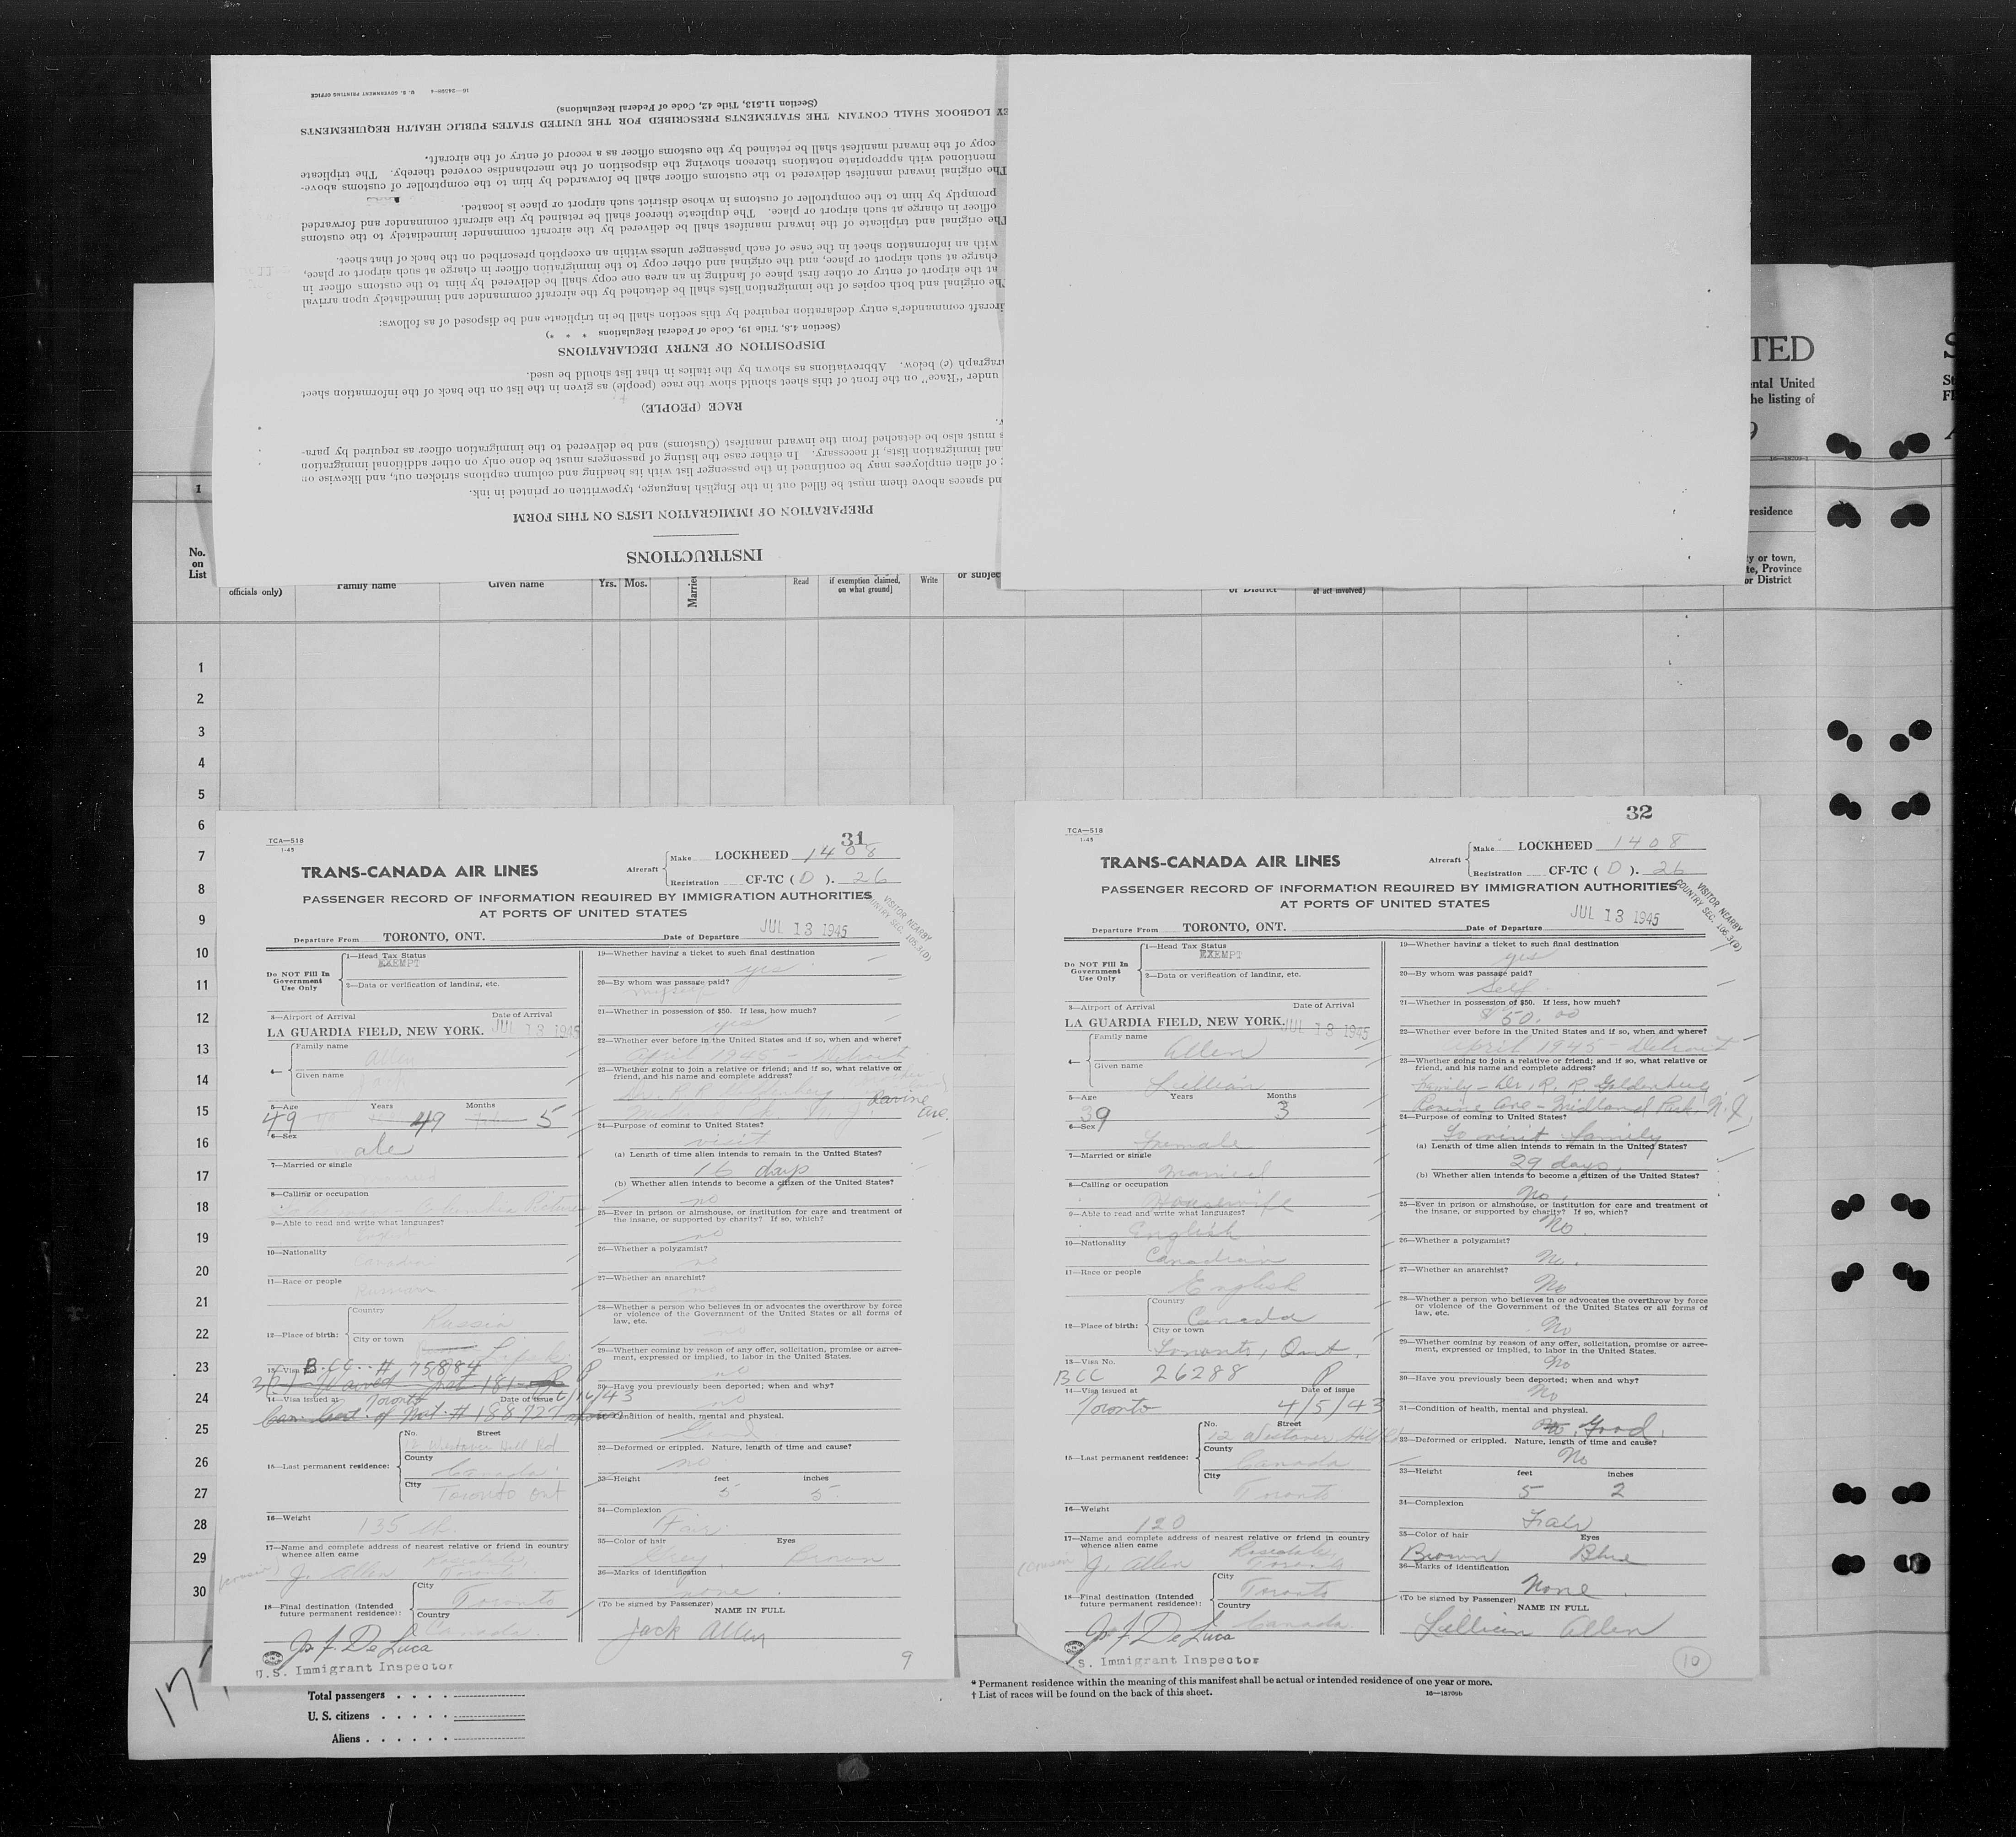 INSTRUCTIONS
PREPARATION OF IMMIGRATION LISTS ON THIS FORM
nd spaces above them must be filled out in the English language, typewritten or printed in ink.
of alien employees may be continued in the passenger list with its heading and column captions stricken out, and likewise on
nal immigration lists, if necessary. In either case the listing of passengers must be done only on other additional immigration
s must also be detached from the inward manifest (Customs) and be delivered to the immigration officer as required by para-
RACE (PEOPLE)
under "Race" on the front of this sheet should show the race (people) as given in the list on the back of the information sheet
ragraph (c) below. Abbreviations as shown by the italics in that list should be used.
DISPOSITION OF ENTRY DECLARATIONS
(Section 4.8, Title 19, Code of Federal Regulations * * *)
ircraft commander's entry declaration required by this section shall be in triplicate and be disposed of as follows:
The original and both copies of the immigration lists shall be detached by the aircraft commander and immediately upon arrival
at the airport of entry or other first place of landing in an area one copy shall be delivered by him to the customs officer in
charge at such airport or place, and the original and other copy to the immigration officer in charge at such airport or place,
with an information sheet in the case of each passenger unless within an exception prescribed on the back of that sheet.
The original and triplicate of the inward manifest shall be delivered by the aircraft commander immediately to the customs
officer in charge at such airport or place. The duplicate thereof shall be retained by the aircraft commander and forwarded
promptly by him to the comptroller of customs in whose district such airport or place is located.
The original inward manifest delivered to the customs officer shall be forwarded by him to the comptroller of customs above-
mentioned with appropriate notations thereon showing the disposition of the merchandise covered thereby. The triplicate
copy of the inward manifest shall be retained by the customs officer as a record of entry of the aircraft.
EY LOGBOOK SHALL CONTAIN THE STATEMENTS PRESCRIBED FOR THE UNITED STATES PUBLIC HEALTH REQUIREMENTS
(Section 11.513, Title 42, Code of Federal Regulations)
16—24508-4 U. S. GOVERNMENT PRINTING OFFICE
TED
ental United
he listing of
16—18709-1
residence
y or town,
te, Province
or District
1
No.
on
List
officials only)
Family name
Given name
Yrs. Mos.
Married
Read
if exemption claimed,
on what ground]
Write
or subjec
or District
of act involved)
1
2
3
4
5
6
7
8
9
10
11
12
13
14
15
16
17
18
19
20
21
22
23
24
25
26
27
28
29
30
TCA—518
1-45
31
TRANS-CANADA AIR LINES
Aircraft
Make LOCKHEED 1408
Registration CF-TC ( D ). 26
PASSENGER RECORD OF INFORMATION REQUIRED BY IMMIGRATION AUTHORITIES
AT PORTS OF UNITED STATES
VISITOR NEARBY
COUNTRY SEC. 106.3(D)
Departure From TORONTO, ONT. Date of Departure JUL 13 1945
Do NOT Fill In
Government
Use Only
1—Head Tax Status
EXEMPT
2—Data or verification of landing, etc.
3—Airport of Arrival Date of Arrival
LA GUARDIA FIELD, NEW YORK. JUL 13 1945
4—
Family name
Allen
Given name
5—Age Years Months
49 49 5
6—Sex
ale
7—Married or single
8—Calling or occupation
Columbia Pictures
9—Able to read and write what languages?
English
10—Nationality
Canadian
11—Race or people
Russian
12—Place of birth:
Country
Russia
City or town
13—Visa B.CC. # 75884
14—Visa issued at Toronto Date of issue 6/16/43
Can. Cert. of Nat. # 188727 shown
15—Last permanent residence:
No. Street
12 Westover Hill Rd
County
Canada
City
Toronto Ont
16—Weight
135 lb.
17—Name and complete address of nearest relative or friend in country
whence alien came
(cousin) J. Allen Rosedale, Toronto
18—Final destination (Intended
future permanent residence):
City
Toronto
Country
Canada
Jo J. De Luca
U.S. Immigrant Inspector
19—Whether having a ticket to such final destination
yes
20—By whom was passage paid?
myself
21—Whether in possession of $50. If less, how much?
yes
22—Whether ever before in the United States and if so, when and where?
April 1945 - Detroit
23—Whether going to join a relative or friend; and if so, what relative or
friend, and his name and complete address?
Ravine
Ave.
24—Purpose of coming to United States?
visit
(a) Length of time alien intends to remain in the United States?
16 days
(b) Whether alien intends to become a citizen of the United States?
no
25—Ever in prison or almshouse, or institution for care and treatment of
the insane, or supported by charity? If so, which?
no
26—Whether a polygamist?
no
27—Whether an anarchist?
no
28—Whether a person who believes in or advocates the overthrow by force
or violence of the Government of the United States or all forms of
law, etc.
no
29—Whether coming by reason of any offer, solicitation, promise or agree-
ment, expressed or implied, to labor in the United States.
no
30—Have you previously been deported; when and why?
no
31—Condition of health, mental and physical.
Good
32—Deformed or crippled. Nature, length of time and cause?
no
33—Height feet inches
5 5
34—Complexion
Fair
35—Color of hair Eyes
Grey Brown
36—Marks of identification
none.
(To be signed by Passenger) NAME IN FULL
Jack Allen
9
TCA—518
1-45
32
TRANS-CANADA AIR LINES
Aircraft
Make LOCKHEED 1408
Registration CF-TC ( D ). 26
PASSENGER RECORD OF INFORMATION REQUIRED BY IMMIGRATION AUTHORITIES
AT PORTS OF UNITED STATES
VISITOR NEARBY
COUNTRY SEC. 106.3(D)
Departure From TORONTO, ONT. Date of Departure JUL 13 1945
Do NOT Fill In
Government
Use Only
1—Head Tax Status
EXEMPT
2—Data or verification of landing, etc.
3—Airport of Arrival Date of Arrival
LA GUARDIA FIELD, NEW YORK. JUL 13 1945
4—
Family name
Allen
Given name
Lillian
5—Age Years Months
39 3
6—Sex
Female
7—Married or single
Married
8—Calling or occupation
Housewife
9—Able to read and write what languages?
English
10—Nationality
Canadian
11—Race or people
English
12—Place of birth:
Country
Canada
City or town
Toronto, Ont.
13—Visa No.
BCC 26288 P
14—Visa issued at Date of issue
Toronto 4/5/43
15—Last permanent residence:
No. Street
12 Westover Hill Rd
County
Canada
City
Toronto
16—Weight
120
17—Name and complete address of nearest relative or friend in country
whence alien came
(cousin J. Allen Rosedale, Toronto
18—Final destination (Intended
future permanent residence):
City
Toronto
Country
Canada
Jo J. De Luca
.S. Immigrant Inspector
19—Whether having a ticket to such final destination
yes
20—By whom was passage paid?
Self.
21—Whether in possession of $50. If less, how much?
$50.00
22—Whether ever before in the United States and if so, when and where?
April 1945 - Detroit
23—Whether going to join a relative or friend; and if so, what relative or
friend, and his name and complete address?
Family - Dr. R. R. Goldenberg
Ravine Ave - Midland Park N.J.
24—Purpose of coming to United States?
To visit family
(a) Length of time alien intends to remain in the United States?
29 days.
(b) Whether alien intends to become a citizen of the United States?
No.
25—Ever in prison or almshouse, or institution for care and treatment of
the insane, or supported by charity? If so, which?
No.
26—Whether a polygamist?
No.
27—Whether an anarchist?
No
28—Whether a person who believes in or advocates the overthrow by force
or violence of the Government of the United States or all forms of
law, etc.
No
29—Whether coming by reason of any offer, solicitation, promise or agree-
ment, expressed or implied, to labor in the United States.
No
30—Have you previously been deported; when and why?
No
31—Condition of health, mental and physical.
Good.
32—Deformed or crippled. Nature, length of time and cause?
No
33—Height feet inches
5 2
34—Complexion
Fair
35—Color of hair Eyes
Brown Blue
36—Marks of identification
None.
(To be signed by Passenger) NAME IN FULL
Lillian Allen
10
17
Total passengers . . . .
U. S. citizens . . . . .
Aliens . . . . . .
* Permanent residence within the meaning of this manifest shall be actual or intended residence of one year or more.
† List of races will be found on the back of this sheet.
16—18709b